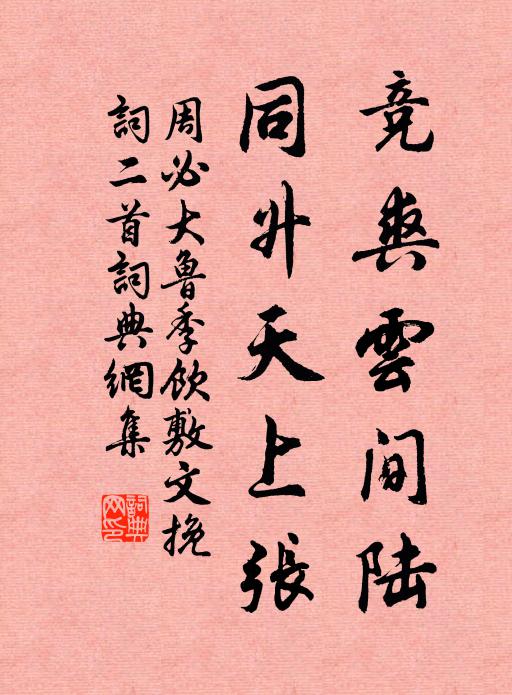 竞爽雲间陆
同升天上張
周必大魯季欽敷文挽
詞二首詞典網集
詞典网印